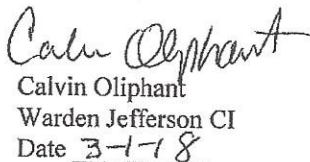 Calvin Oliphant
Calvin Oliphant
Warden Jefferson CI
Date 3-1-18